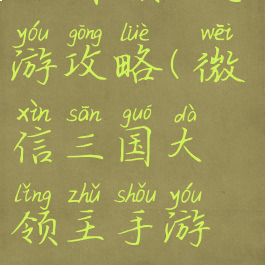 yóu gōng lüè wēi
游攻略(微
xìn sān guó dà
信三国大
lǐng zhǔ shǒu yóu
领主手游